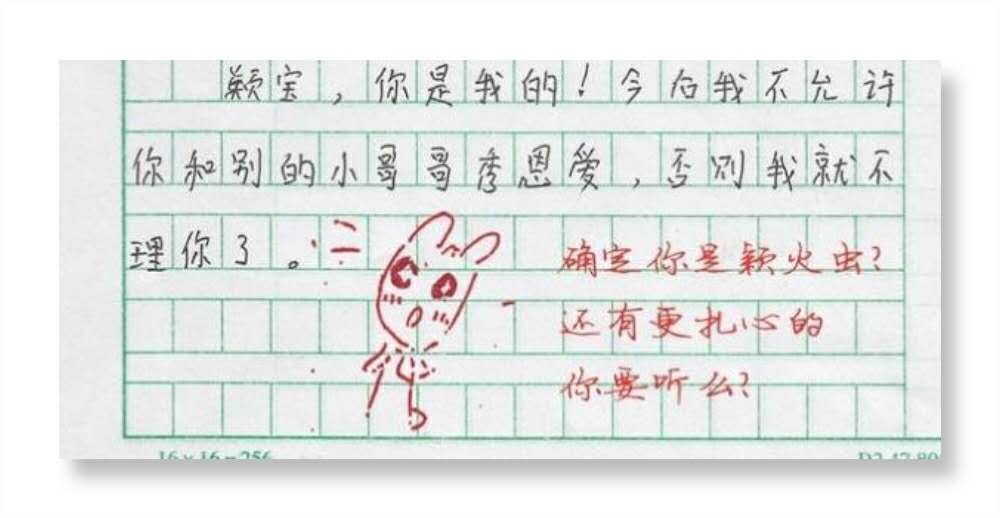 颖宝，你是我的！今后我不允许
你和别的小哥哥秀恩爱，否则我就不
理你了。
确定你是颖火虫？
还有更扎心的
你要听么？
16×16=256